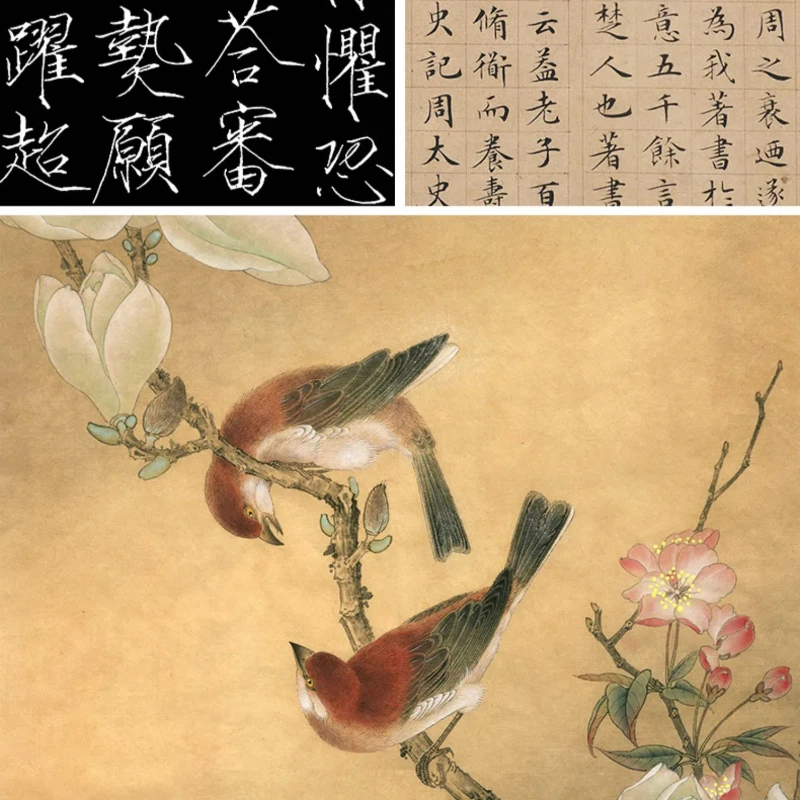 懼恐
荅審
熱願
躍超
周之衰迺遂
為我著書於
意五千餘言
楚人也著書
云葢老子百
脩衟而養壽
史記周太史